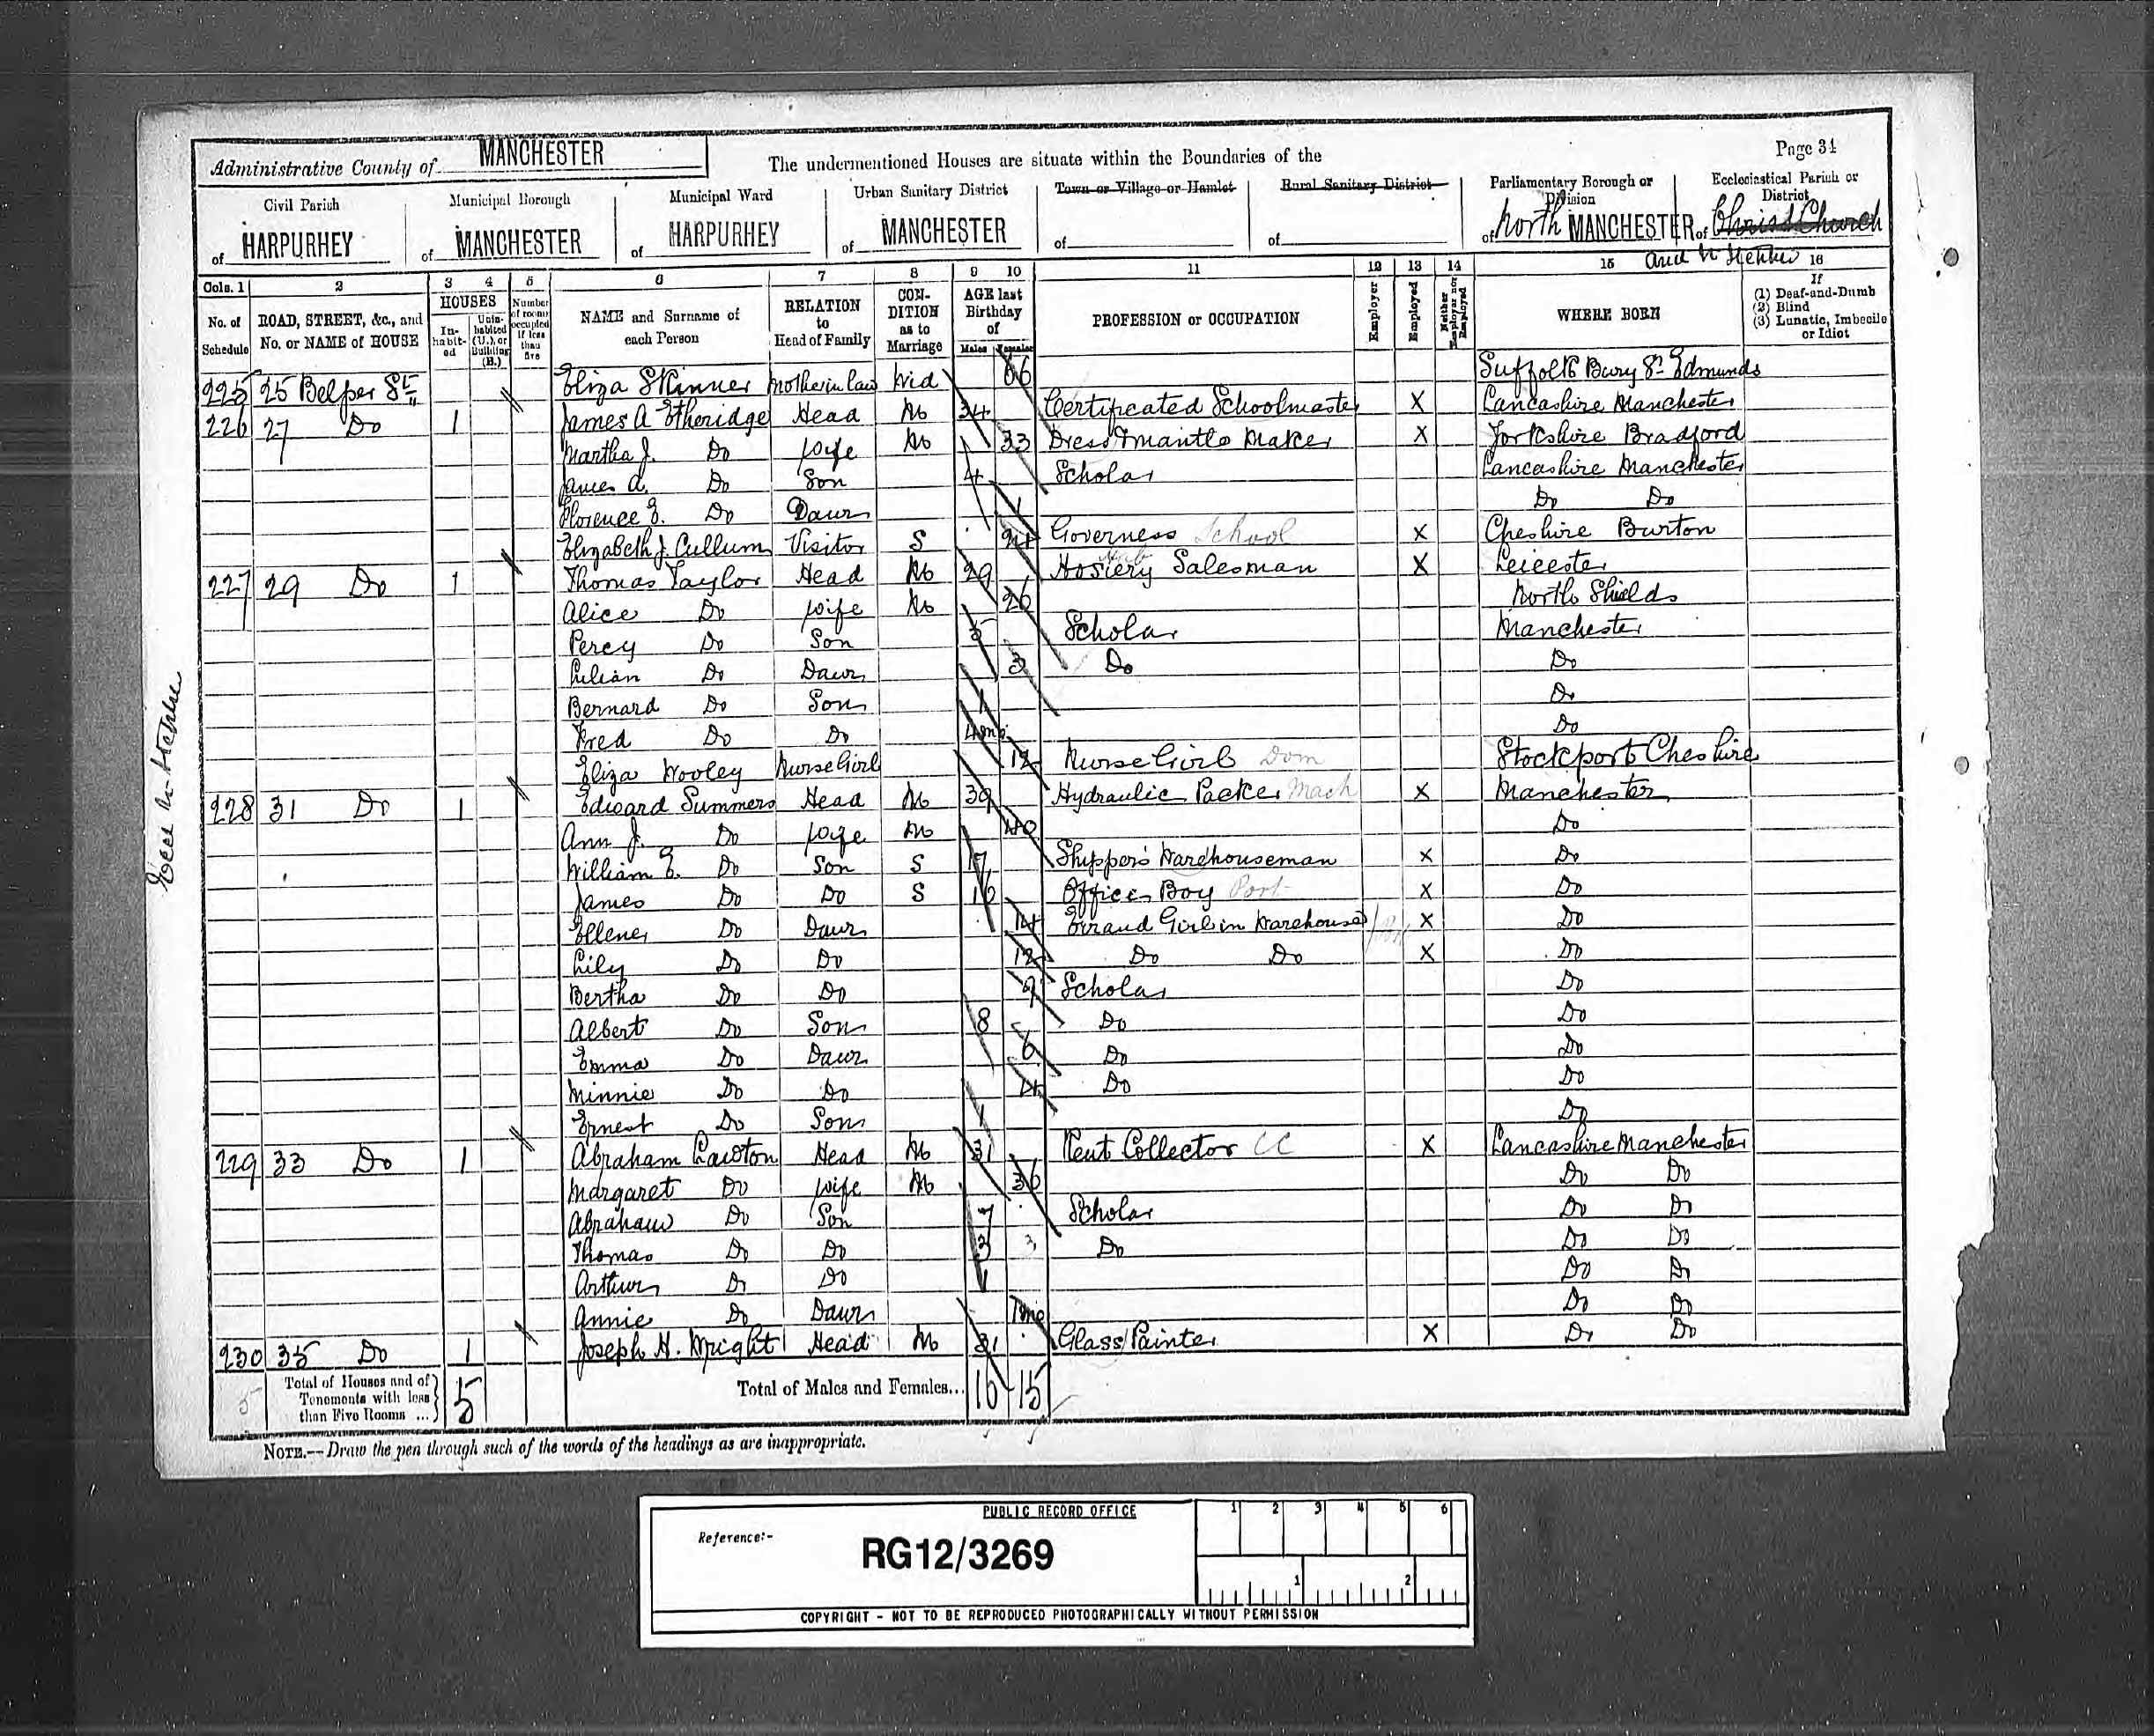 Administrative County of MANCHESTER The undermentioned Houses are situate within the Boundaries of the Page 31
Civil Parish Municipal Borough Municipal Ward Urban Sanitary District Town or Village or Hamlet Rural Sanitary District Parliamentary Borough or Division Ecclesiastical Parish or District
of HARPURHEY of MANCHESTER of HARPURHEY of MANCHESTER of of of North MANCHESTER of Christ Church
Cols. 1 2 3 4 5 6 7 8 9 10 11 12 13 14 15 16
No. of Schedule ROAD, STREET, &c., and No. or NAME of HOUSE HOUSES Inhabited Uninhabited (U.), or Building (B.) Number of rooms occupied if less than five NAME and Surname of each Person RELATION to Head of Family CONDITION as to Marriage AGE last Birthday of Males Females PROFESSION or OCCUPATION Employer Employed Neither Employer nor Employed WHERE BORN If (1) Deaf-and-Dumb (2) Blind (3) Lunatic, Imbecile or Idiot
225 25 Belper St Eliza Skinner Mother in law Wid 66 Suffolk Bury St Edmunds
226 27 Do 1 James A Etheridge Head M 34 Certificated Schoolmaster X Lancashire Manchester
Martha J. Do Wife M 33 Dress & Mantle Maker X Yorkshire Bradford
James A. Do Son 4 Scholar Lancashire Manchester
Florence E. Do Daur 1 Do Do
Elizabeth J. Cullum Visitor S 24 Governess School X Cheshire Burton
227 29 Do 1 Thomas Taylor Head M 29 Hosiery Salesman X Leicester
Alice Do Wife M 26 North Shields
Percy Do Son 5 Scholar Manchester
Lilian Do Daur 3 Do Do
Bernard Do Son 1 Do
Fred Do Do 4 mo Do
Eliza Wooley Nurse Girl 12 Nurse Girl Dom Stockport Cheshire
228 31 Do 1 Edward Summers Head M 39 Hydraulic Packer Mach X Manchester
Ann J. Do Wife M 40 Do
William E. Do Son S 17 Shippers Warehouseman X Do
James Do Do S 16 Office Boy Port X Do
Ellener Do Daur 14 Errand Girl in Warehouse X Do
Lily Do Do 12 Do Do X Do
Bertha Do Do 9 Scholar Do
Albert Do Son 8 Do Do
Emma Do Daur 6 Do Do
Minnie Do Do 4 Do Do
Ernest Do Son 1 Do
229 33 Do 1 Abraham Lawton Head M 31 Rent Collector CC X Lancashire Manchester
Margaret Do Wife M 36 Do Do
Abraham Do Son 7 Scholar Do Do
Thomas Do Do 3 3 Do Do Do
Arthur Do Do 1 Do Do
Annie Do Daur 1 mo Do Do
230 35 Do 1 Joseph H. Wright Head M 31 Glass Painter X Do Do
5 Total of Houses and of Tenements with less than Five Rooms ... 5 Total of Males and Females... 16 15
NOTE.—Draw the pen through such of the words of the headings as are inappropriate.
PUBLIC RECORD OFFICE 1 2 3 4 5 6
Reference:- RG12/3269
1 2
COPYRIGHT - NOT TO BE REPRODUCED PHOTOGRAPHICALLY WITHOUT PERMISSION